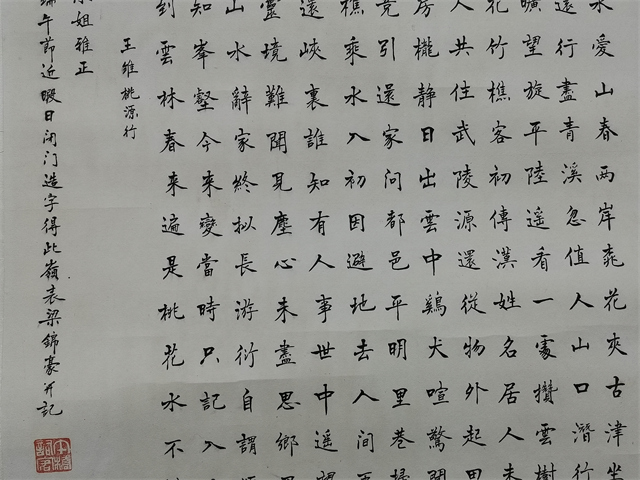 水愛山春两岸桃花夾古津坐
遠行盡青溪忽值人山口潛行
曠望旋平陸遥看一處攢雲樹
花竹樵客初傳漢姓名居人未
人共住武陵源還從物外起田
房櫳静日出雲中鷄犬喧驚聞
竞引還家問都邑平明里巷掃
樵乘水入初因避地去人間
還峽裏誰知有人事世中遥望
靈境難聞見塵心未盡思鄉
山水辭家終拟長游衍自謂
知峯壑今來變當時只記入
到雲林春來遍是桃花水不
王維桃源行
姐雅正
端午節近暇日闭门造字得此嶺表梁錦豪并記